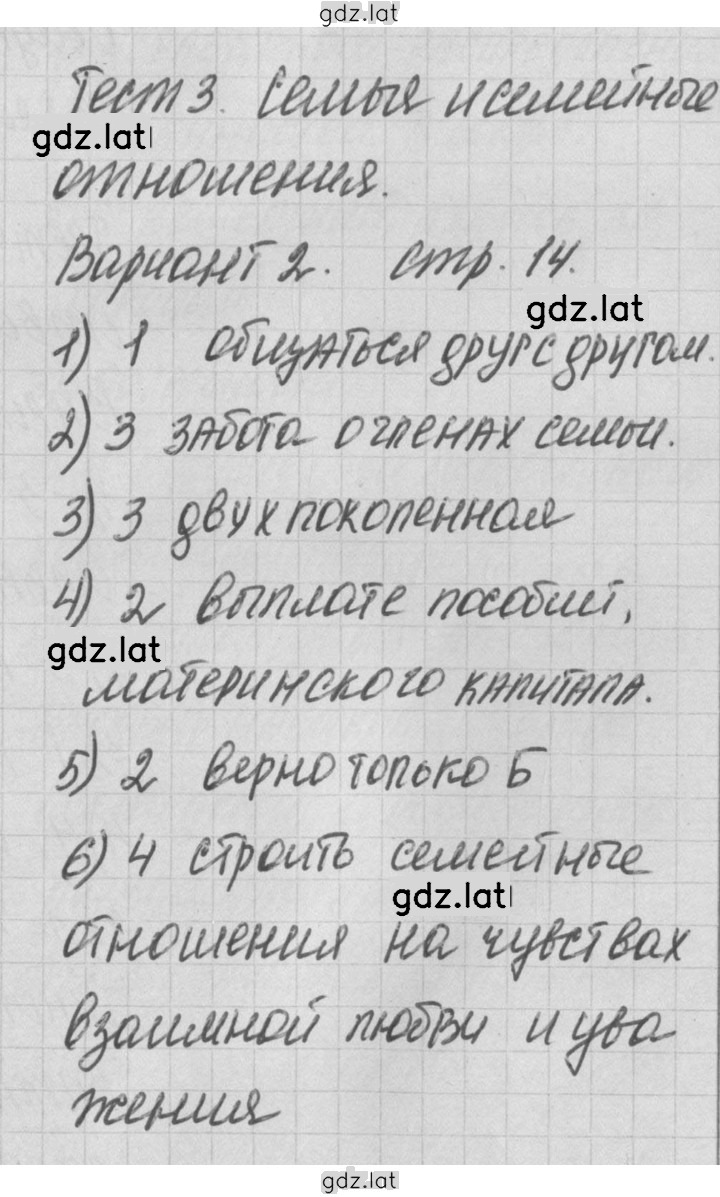 gdz.lat
Тест 3. Семья и семейные
gdz.lat
отношения.
Вариант 2. стр. 14.
gdz.lat
1) 1 общаться друг с другом.
2) 3 забота о членах семьи.
3) 3 двухпоколенная
4) 2 выплате пособий,
gdz.lat
материнского капитала.
5) 2 верно только Б
6) 4 строить семейные
gdz.lat
отношения на чувствах
взаимной любви и ува
жения
gdz.lat